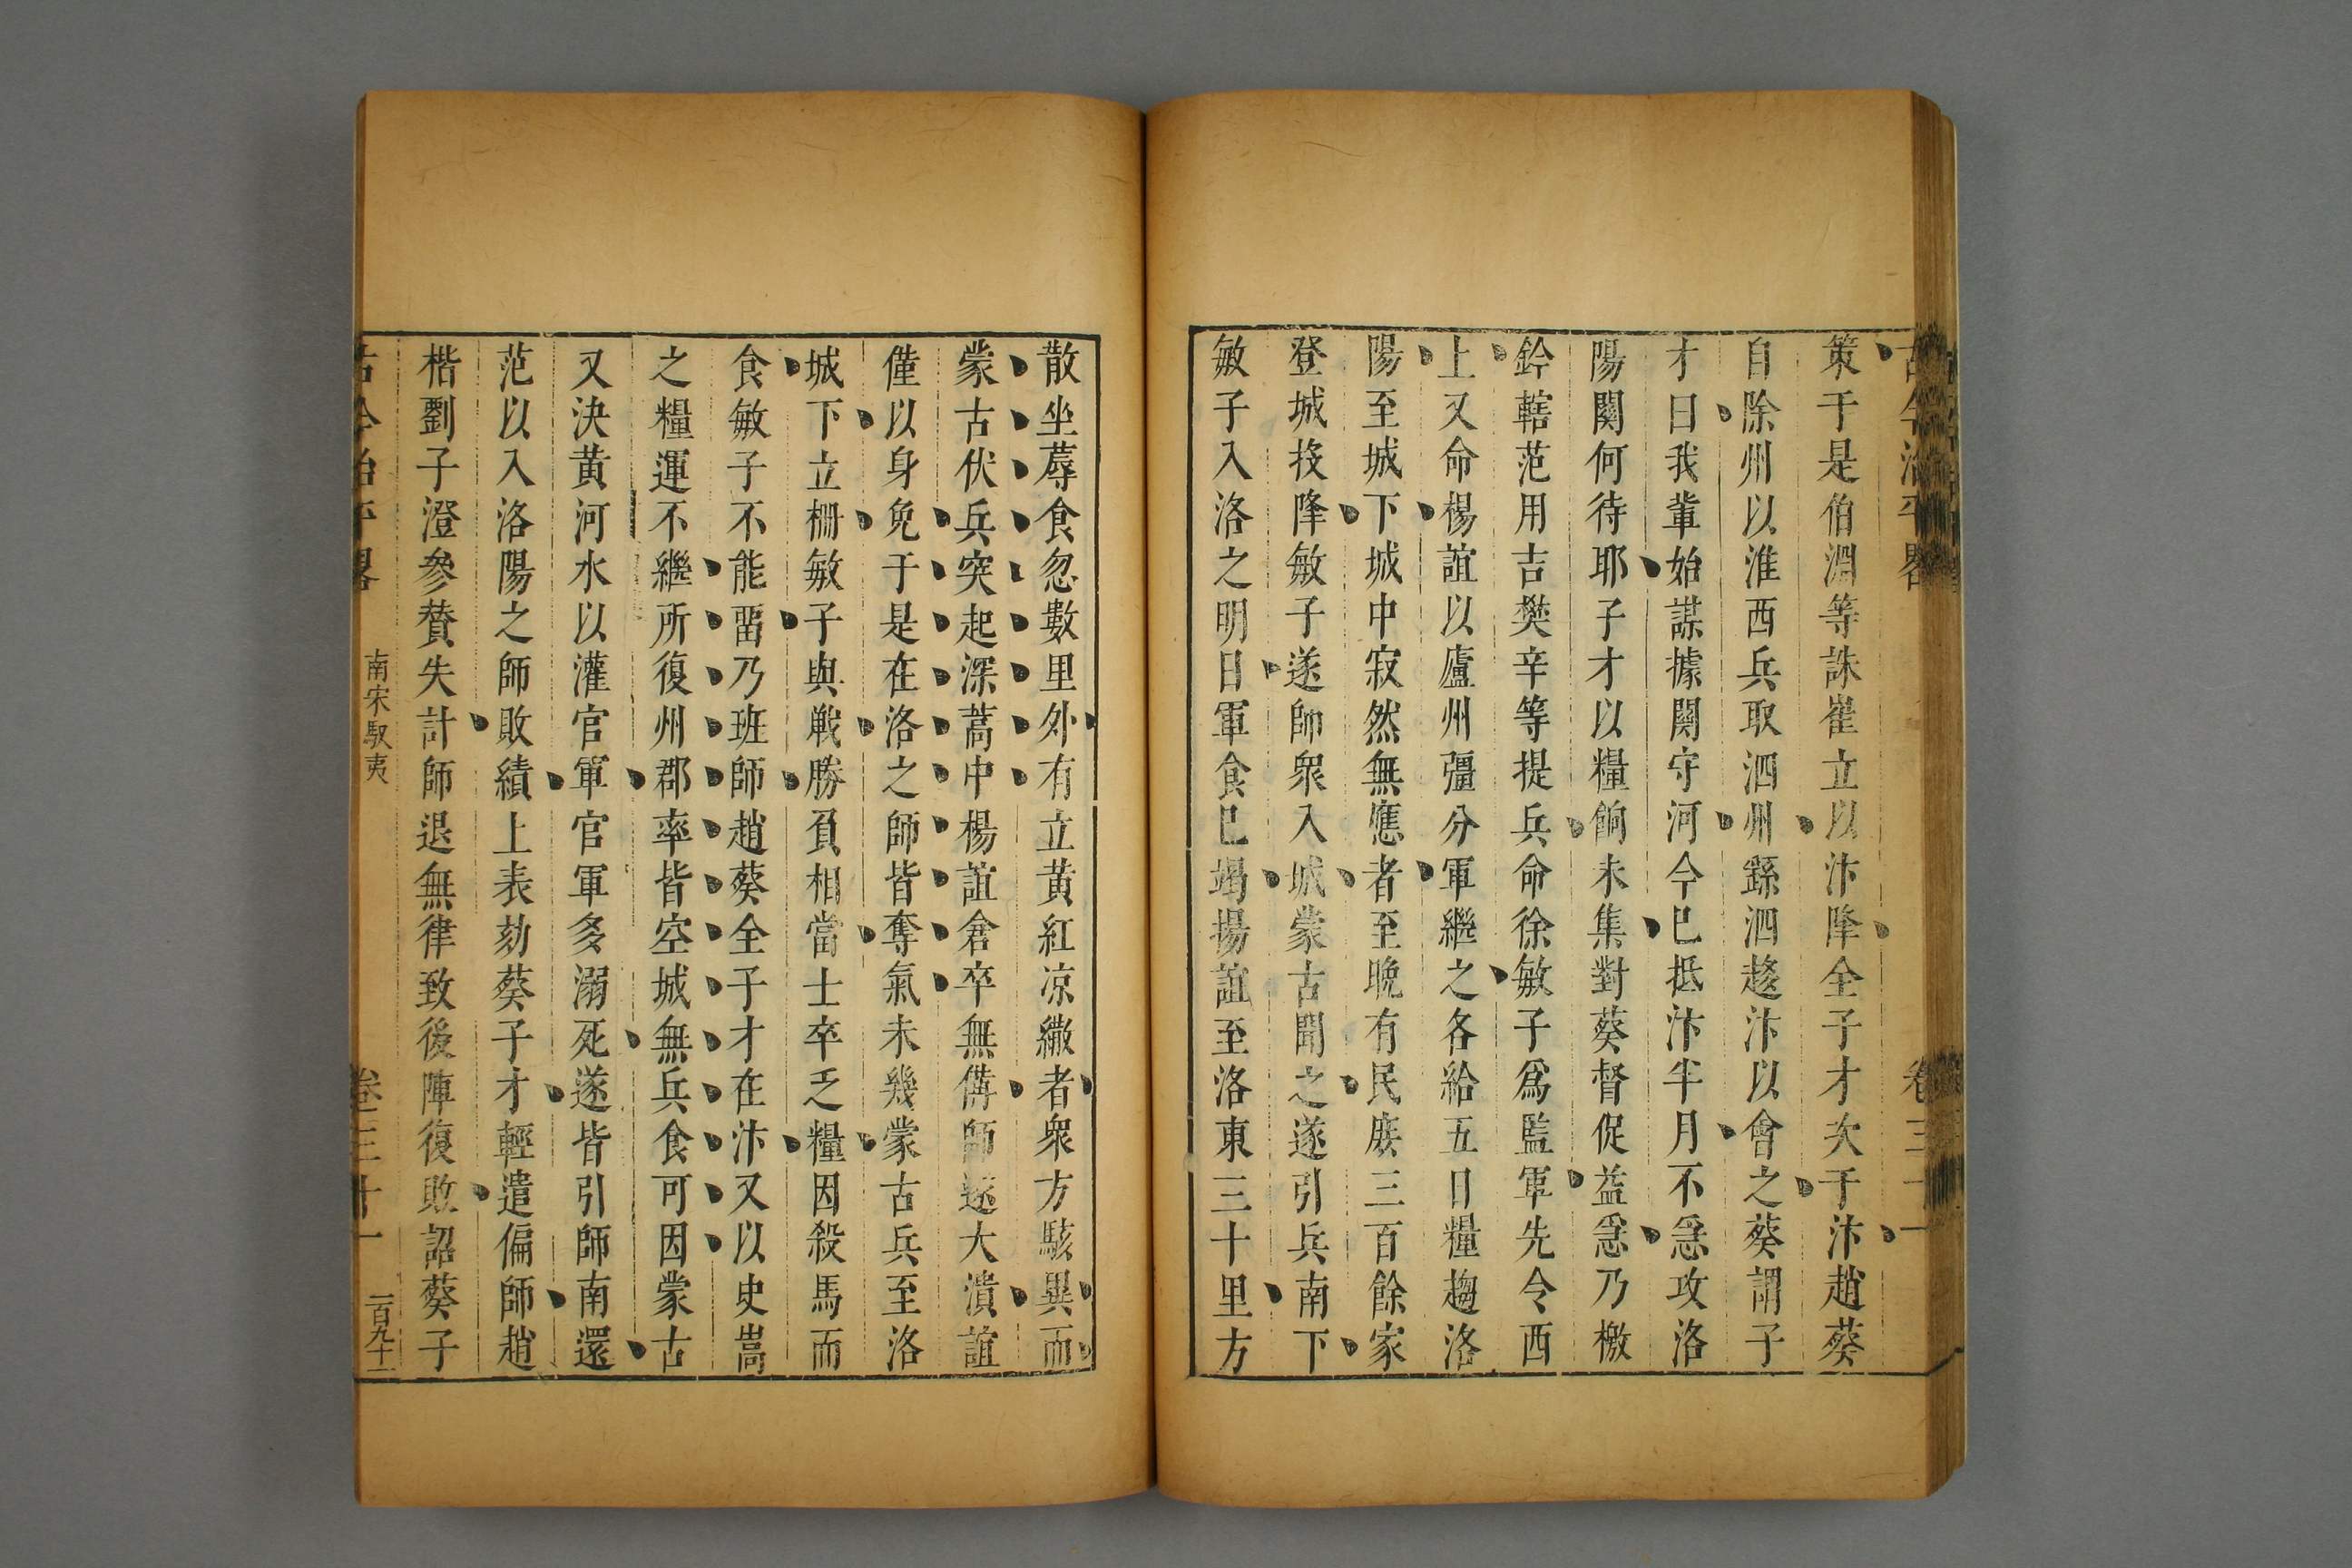 策于是伯淵等誅崔立以汴降全子才次于汴趙葵
自除州以淮西兵取泗州繇泗趍汴以會之葵謂子
才曰我輩始謀據関守河今巳抵汴半月不急攻洛
陽関何待耶子才以糧餉未集對葵督促益急乃檄
鈐轄范用吉樊辛等提兵命徐敏子爲監軍先令西
上又命楊誼以廬州彊分軍繼之各給五日糧趨洛
陽至城下城中寂然無應者至晚有民庻三百餘家
登城投降敏子遂師衆入城蒙古聞之遂引兵南下
敏子入洛之明日軍食巳竭揚誼至洛東三十里方
散坐蓐食忽數里外有立黃紅凉繖者衆方駭異而
蒙古伏兵突起深蒿中楊誼倉卒無備師遂大潰誼
僅以身免于是在洛之師皆奪氣未幾蒙古兵至洛
城下立柵敏子與戰勝負相當士卒乏糧因殺馬而
食敏子不能畱乃班師趙葵全子才在汴又以史嵩
之糧運不繼所復州郡率皆空城無兵食可因蒙古
又決黃河水以灌官軍官軍多溺死遂皆引師南還
范以入洛陽之師敗績上表劾葵子才輕遣偏師趙
楷劉子澄參賛失計師退無律致後陣復敗詔葵子
古今治平畧
南宋馭夷
卷三十一
一百九十二